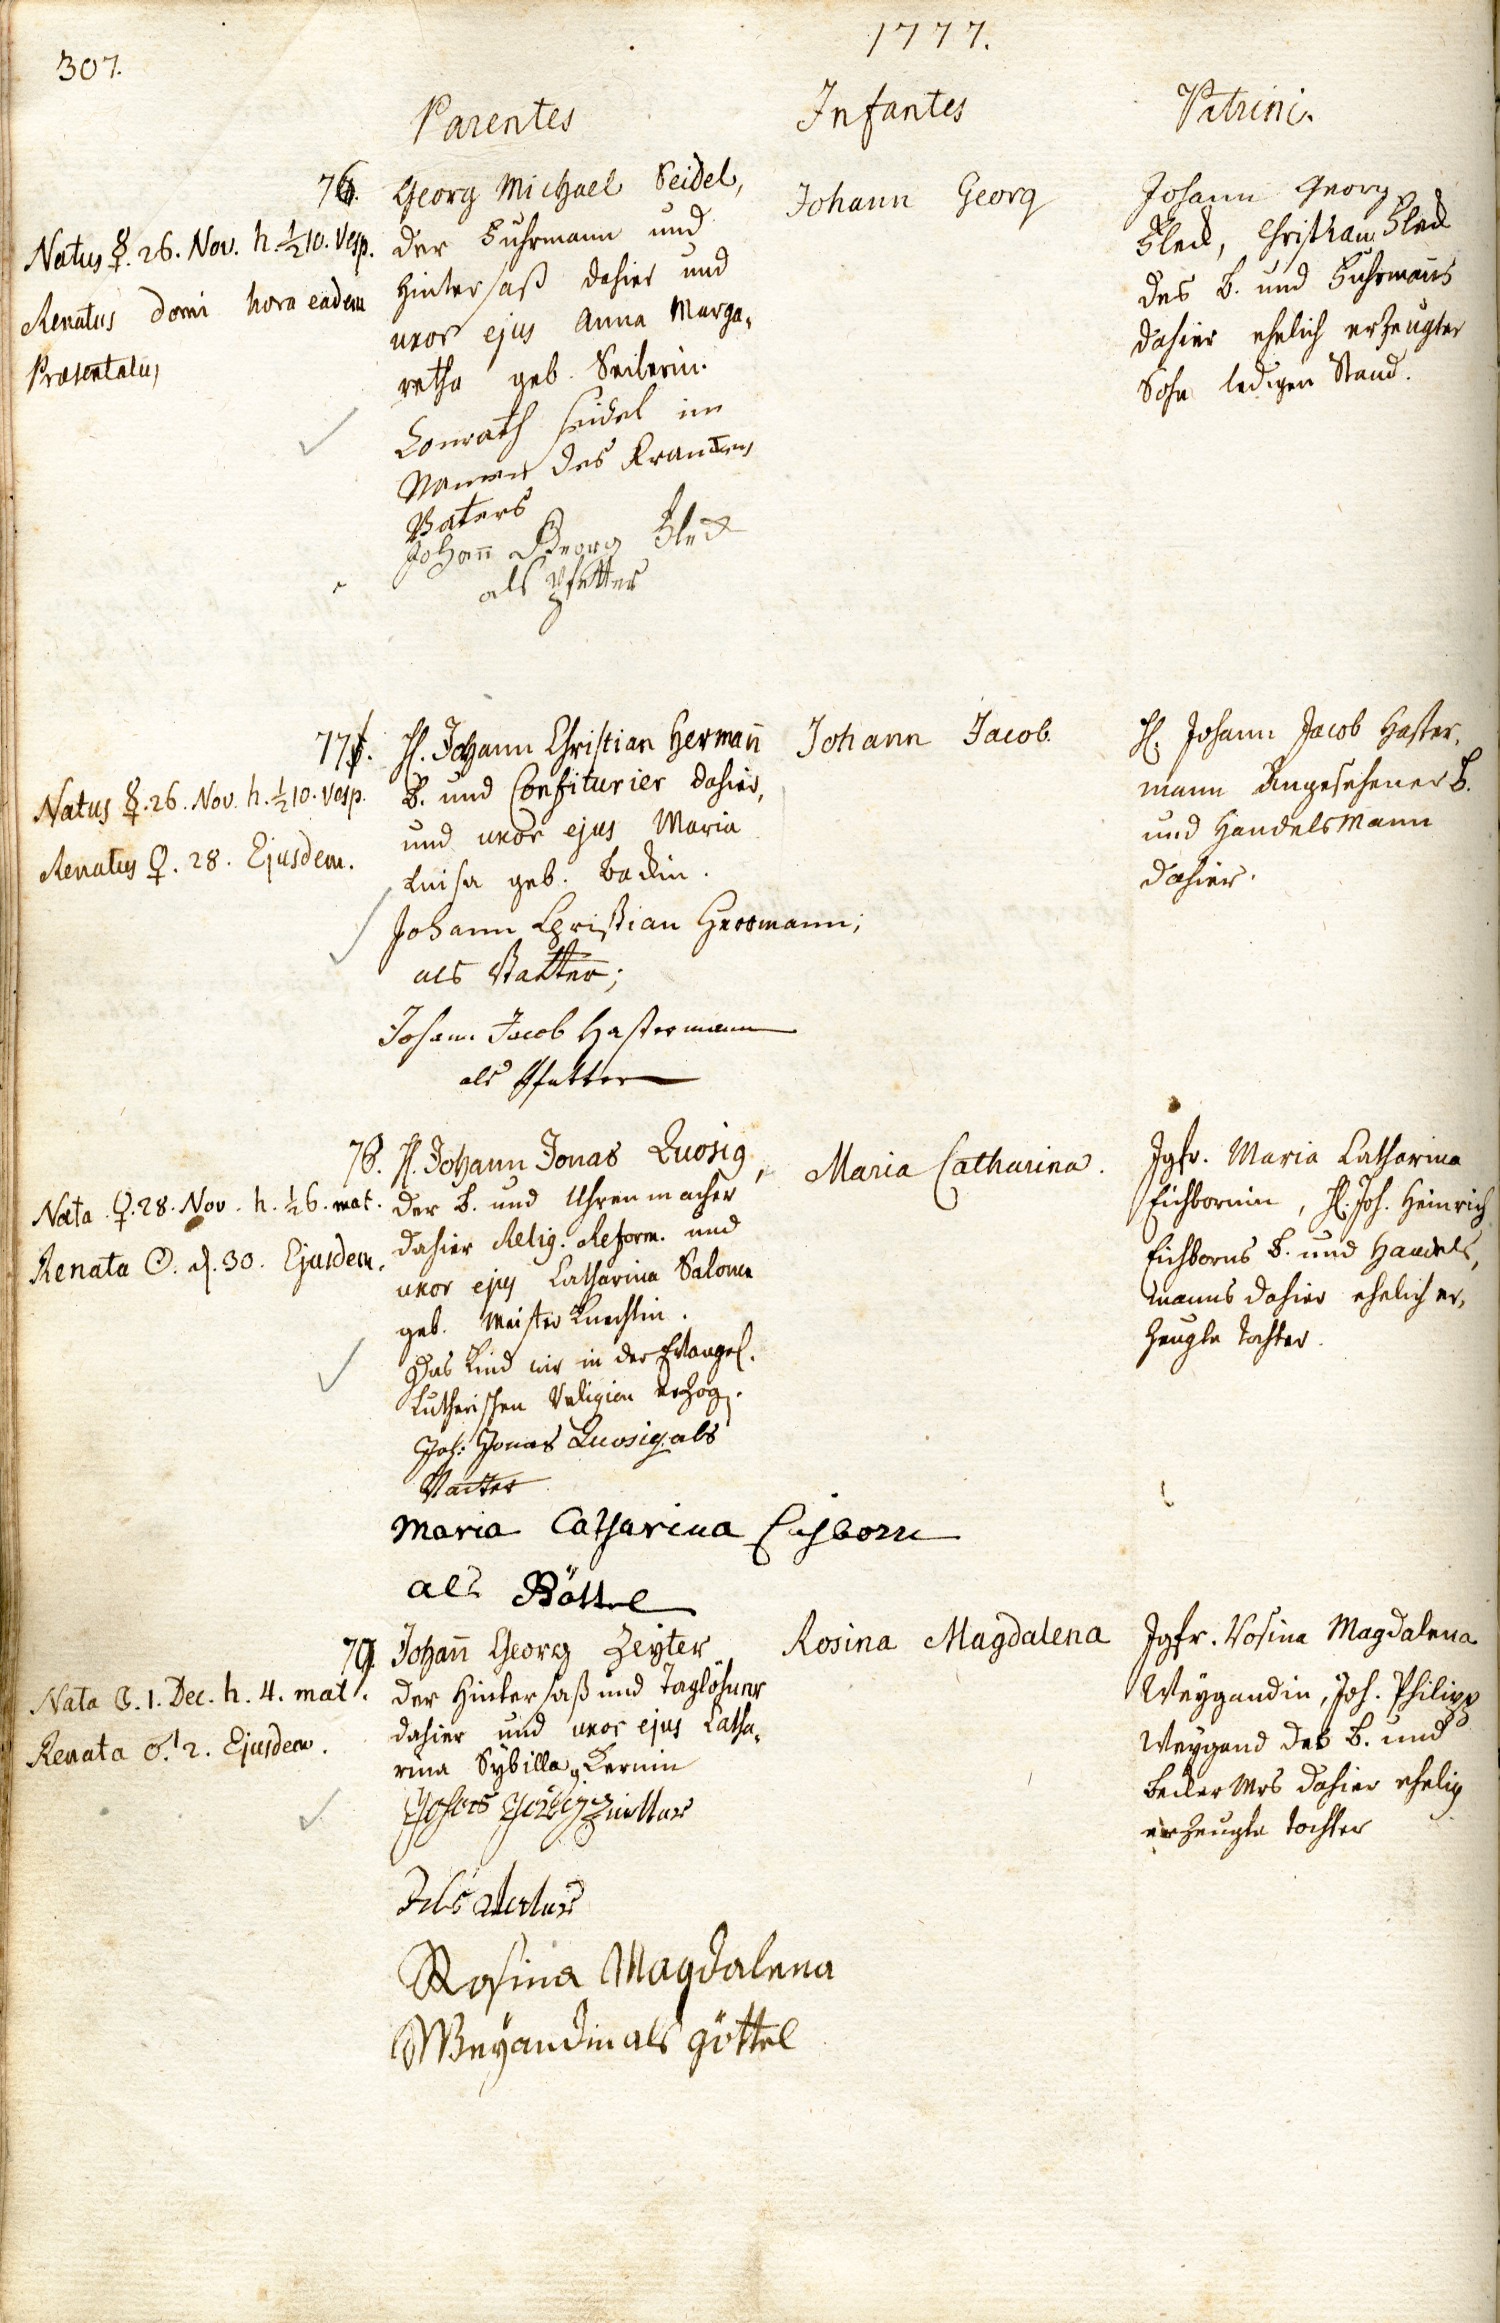 307.
1777.
Parentes
Infantes
Patrini.
76.
Natus ☿. 26. Nov. h. ½10. Vesp.
Renatus domi hora eadem
Præsentatus
Georg Michael Seidel,
der Fuhrmann und
Hintersaß dahier und
uxor ejus Anna Marga-
retha geb. Seilerin.
Conrath Seidel im
Namen des Krancken
Vaters
Johann Georg Fleck
als Pfetter
Johann Georg
Johann Georg
Fleck, Christian Fleck
des B. und Fuhrmanns
dahier ehelich erzeugter
Sohn ledigen Stand.
77.
Natus ☿. 26. Nov. h. ½10. Vesp.
Renatus ♀. 28. Ejusdem.
H. Johann Christian Hermann
B. und Confiturier dahier,
und uxor ejus Maria
Luisa geb. Beckin.
Johann Christian Herrmann;
als Vatter;
Johann Jacob Hastermann
als Pfetter
Johann Jacob.
H. Johann Jacob Haster-
mann Angesehener B.
und Handelsmann
dahier.
78.
Nata ♀. 28. Nov. h. ½6. mat.
Renata ☉. d. 30. Ejusdem.
H. Johann Jonas Quosig,
der B. und Uhrenmacher
dahier Relig. Reform. und
uxor ejus Catharina Salome
geb. Meister Knechtin.
Das Kind wir in der Evangel.
Lutherischen Religion erzog.
Joh: Jonas Quosig als
Vatter
Maria Catharina Eichborn
als Göttel
Maria Catharina.
Jgfr. Maria Catharina
Eichbornin, H. Joh. Heinrich
Eichborns B. und Handels-
manns dahier ehelich er-
zeugte Tochter.
79.
Nata ☾. 1. Dec. h. 4. mat.
Renata ♂. 2. Ejusdem.
Johann Georg Zeyter
der Hintersaß und Taglöhner
dahier und uxor ejus Catha-
rina Sybilla g. Kernin
Als Vatter
Rosina Magdalena
Weyandin als göttel
Rosina Magdalena
Jgfr. Rosina Magdalena
Weygandin, Joh. Philipp
Weygand des B. und
Beckermrs dahier ehelich
erzeugte Tochter